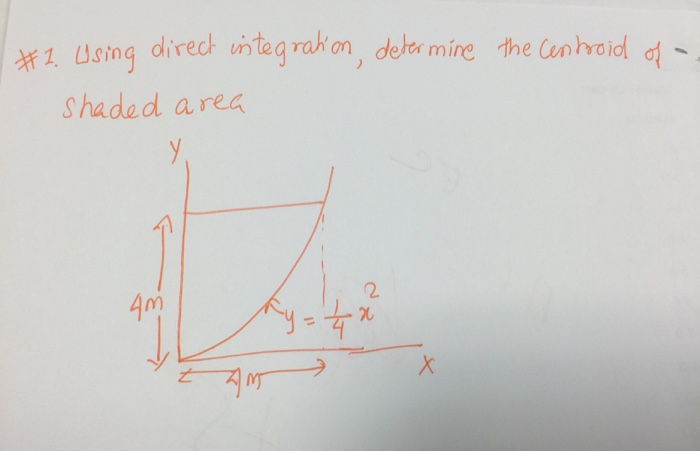 #1. Using direct integration, determine the Centroid of
shaded area
Y
4m
y = 1/4 x²
4m
X